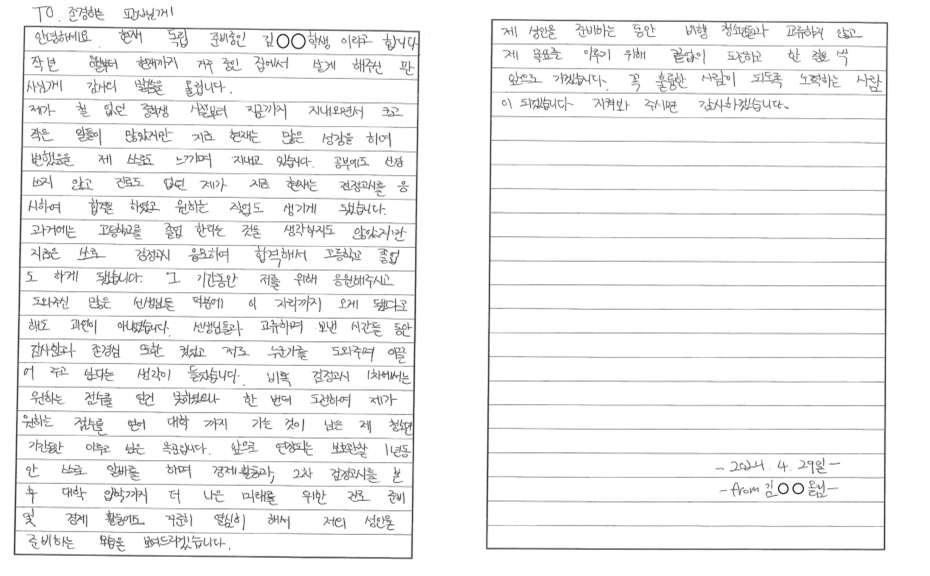 TO. 존경하는 판사님께!
안녕하세요. 현재 독립 준비중인 김○○학생 이라고 합니다
작년 부터 현재까지 거주 중인 집에서 살게 해주신 판
사님께 감사의 말씀을 올립니다.
제가 철 없던 중학생 시절부터 지금까지 지내오면서 크고
작은 일들이 많았지만 지금 현재는 많은 성장을 하여
변했음을 제 스스로 느끼며 지내고 있습니다. 공부에도 신경
쓰지 않고 진로도 없던 제가 지금 현재는 검정고시를 응
시하여 합격을 하였고 원하는 직업도 생기게 됐습니다.
과거에는 고등학교를 졸업 한다는 것을 생각하지도 않았지만
지금은 스스로 검정고시 응모하여 합격해서 고등학교 졸업
도 하게 됐습니다. 그 기간동안 저를 위해 응원해주시고
도와주신 많은 선생님들 덕분에 이 자리까지 오게 됐다고
해도 과언이 아니었습니다. 선생님들과 교류하며 보낸 시간들 동안
감사함과 존경심 또한 컸었고 저도 누군가를 도와주며 이끌
어 주고 싶다는 생각이 들었습니다. 비록 검정고시 1차에서는
원하는 점수를 얻진 못하였으나 한 번더 도전하여 제가
원하는 점수를 얻어 대학 까지 가는 것이 남은 제 청소년
기간동안 이루고 싶은 목표입니다. 앞으로 연장되는 보호관찰 1년동
안 스스로 알바를 하며 경제활동과, 2차 검정고시를 본
후 대학 입학까지 더 나은 미래를 위한 진로 준비
및 경제 활동에도 꾸준히 열심히 해서 저의 성인을
준비하는 모습을 보여드리겠습니다.
제 성인을 준비하는 동안 비행 청소년들과 교류하지 않고
제 목표를 이루기 위해 끝없이 도전하고 한 걸음 씩
앞으로 가겠습니다. 꼭 훌륭한 사람이 되도록 노력하는 사람
이 되겠습니다. 지켜봐 주시면 감사하겠습니다.
- 2024. 4. 29일 -
- from 김○○올림 -